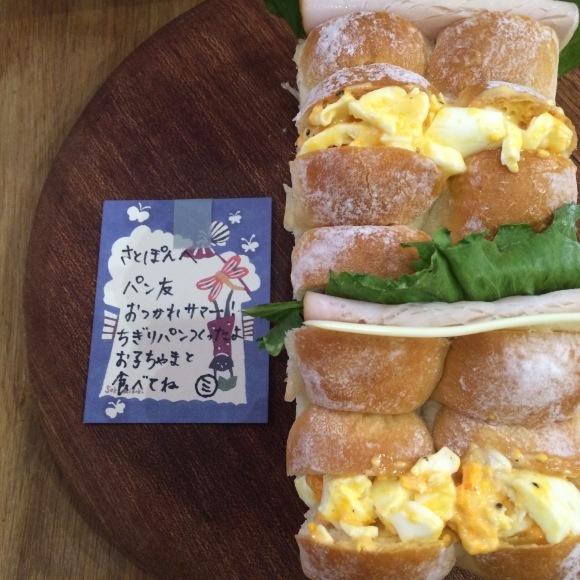 さとぽんへ
パン友
おつかれサマー!!
ちぎりパンつくったよ
お子ちゃまと
食べてね ミ